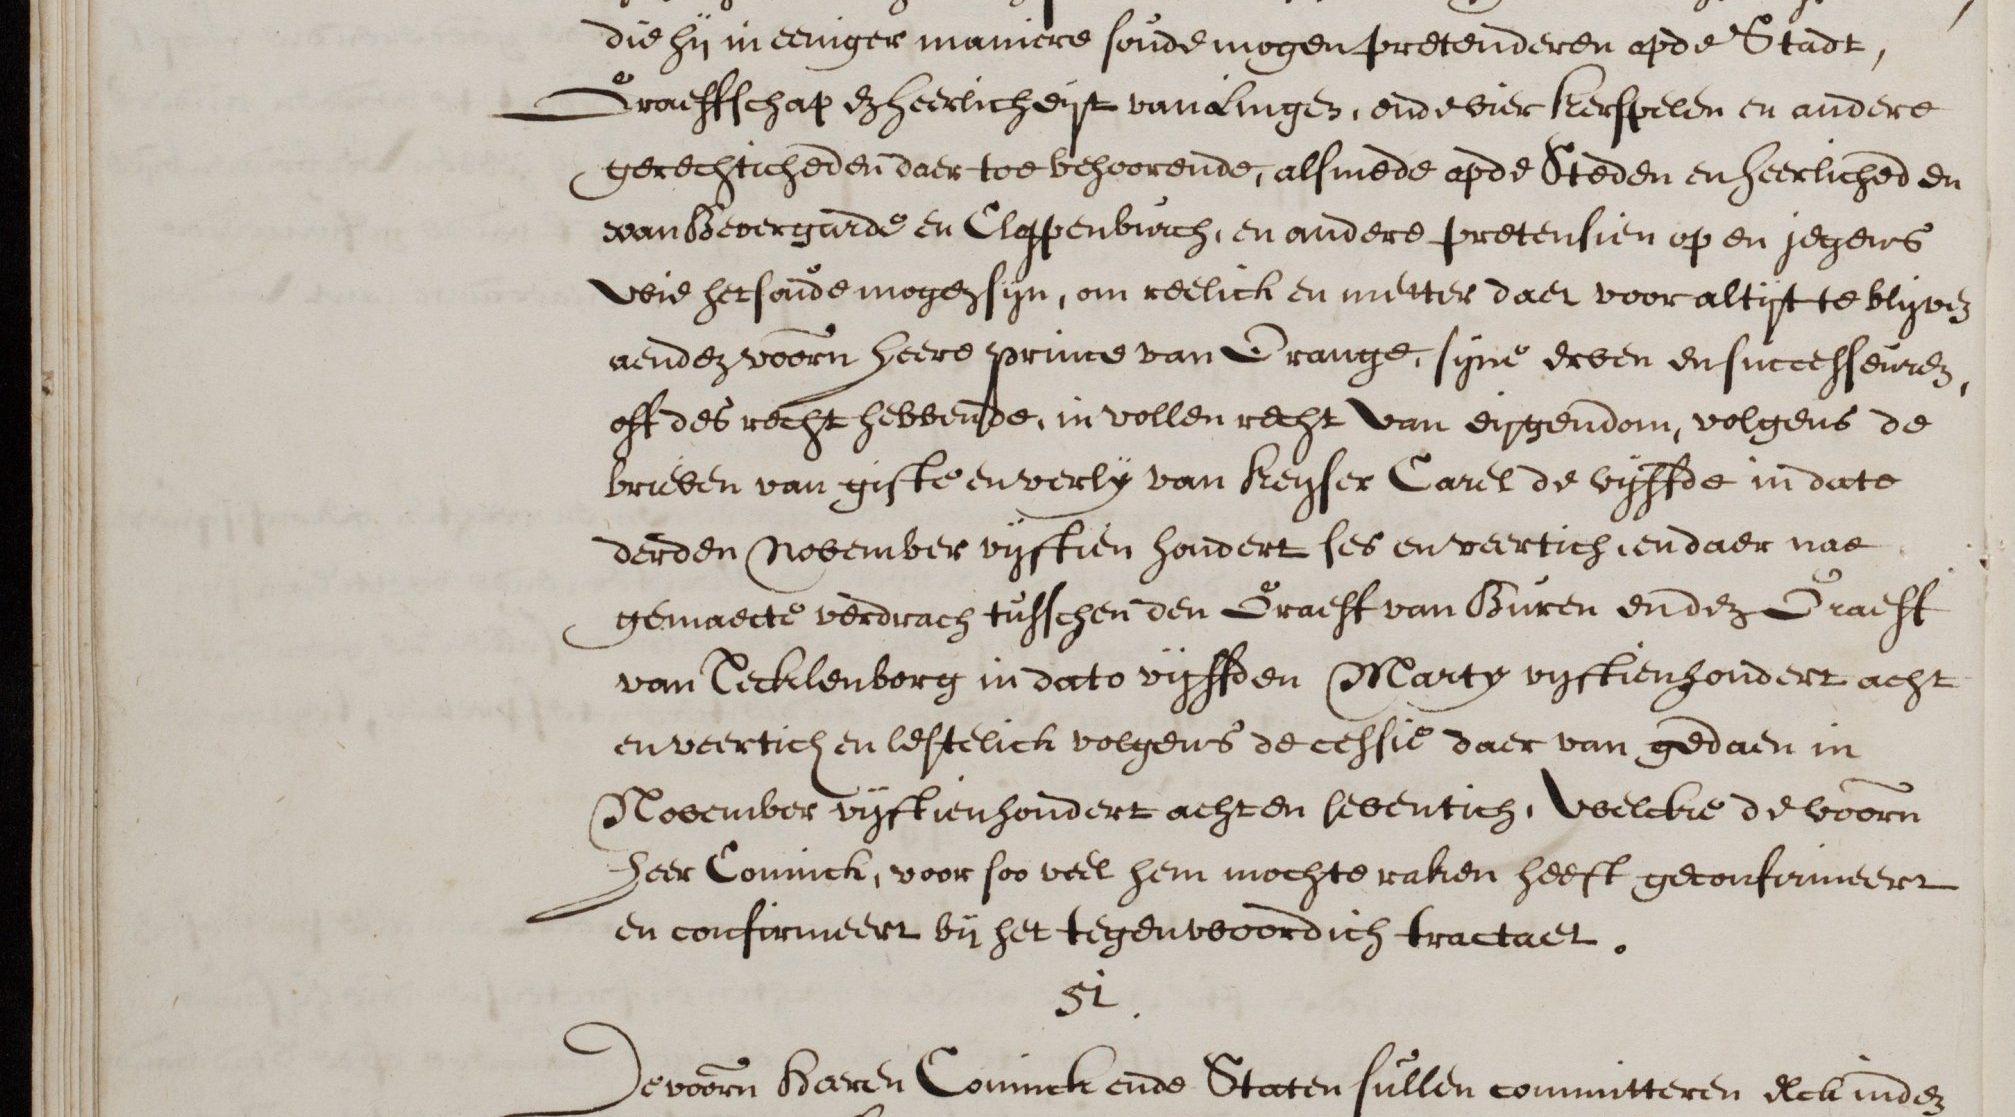 die hij in eeniger maniere soude mogen pretenderen op de Stadt,
Graeffschap ez heerlicheijt van Lingez, ende vier kerspelen en andere
gerechticheden daer toe behoorende, alsmede op de Steden en heerlicheden
van Bevergarde en Cloppenburch, en andere pretensien op en jegens
wie het soude mogez sijn, om reelick en metter daet voor altijt te blijvez
aen dez voorn heere prince van Orange, sijne erven en successeurez,
oft des recht hebbende, in vollen recht van eijgendom, volgens de
brieven van gifte en verlij van Keyser Carel de vijffde in dato
derden November vijftien hondert ses en veertich, en daer nae
gemaecte verdrach tusschen den Graeff van Buren en dez Graeff
van Tecklenborg in dato vijffden Marty vijftienhondert acht
en veertich en lestelick volgens de cessie daer van gedaen in
November vijftienhondert acht en seventich, Welcke de voorn
heer Coninck, voor soo veel hem mochte raken heeft geconfirmeert
en confirmeert bij het tegenwoordich tractaet.
51.
De voorn heeren Coninck ende Staten sullen committeren elck in dez